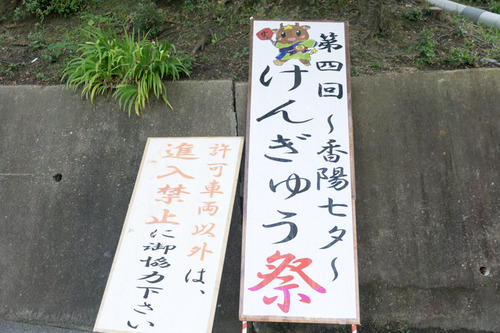 第四回 ～香陽七夕～
けんぎゅう祭
許可車両以外は、
進入禁止に御協力下さい